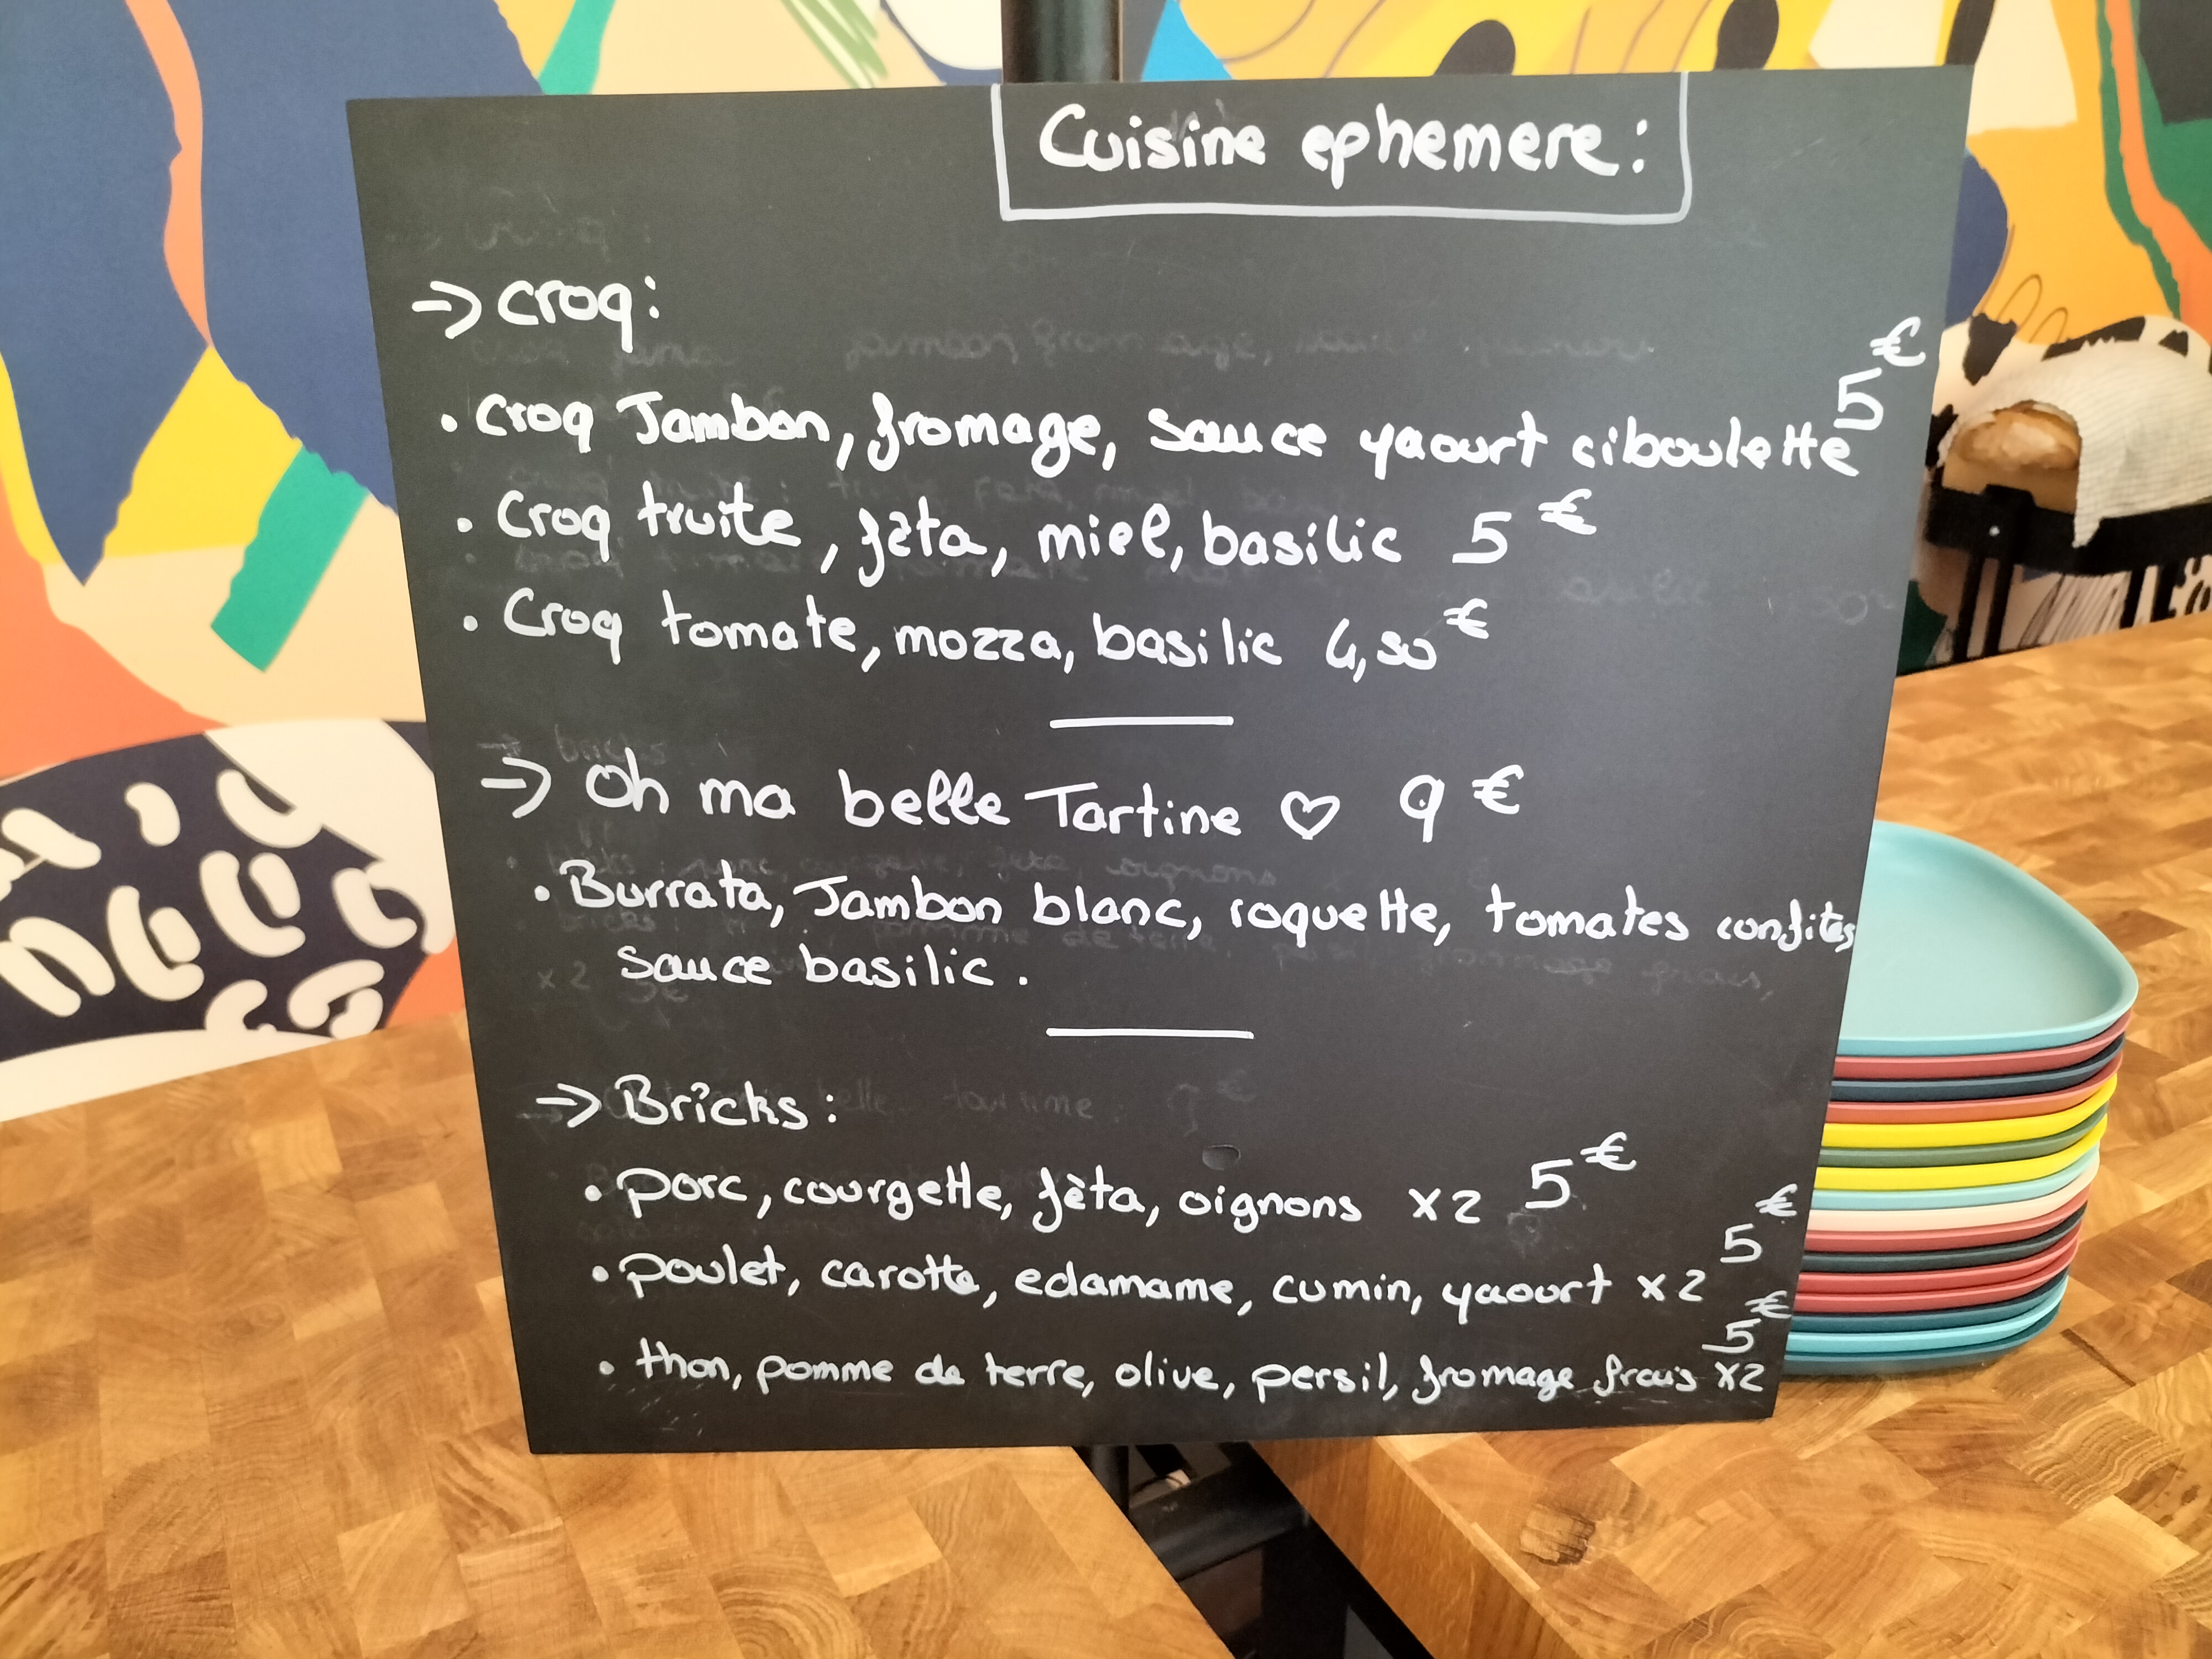 Cuisine ephemere :
-> Croq :
• Croq Jambon, fromage, sauce yaourt ciboulette 5€
• Croq truite, fèta, miel, basilic 5€
• Croq tomate, mozza, basilic 4,50€
-> Oh ma belle Tartine ♡ 9€
• Burrata, Jambon blanc, roquette, tomates confites
sauce basilic.
-> Bricks :
• porc, courgette, fèta, oignons x2 5€
• poulet, carotte, edamame, cumin, yaourt x2 5€
• thon, pomme de terre, olive, persil, fromage frais x2 5€